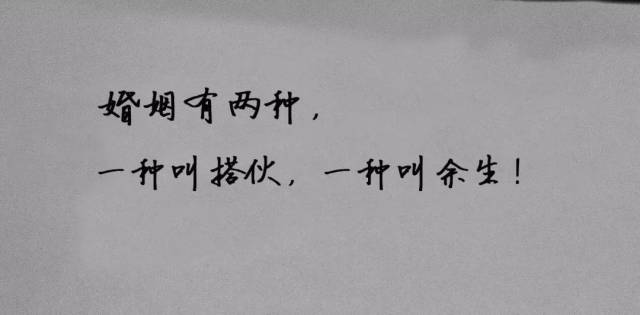 婚姻有两种，
一种叫搭伙，一种叫余生！